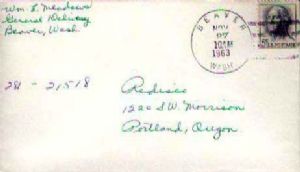 Wm L. Meadows
General Delivery
Beaver, Wash.
BEAVER
NOV
27
10 AM
1963
WASH
281 - 21518
Redisco
1220 S.W. Morrison
Portland, Oregon